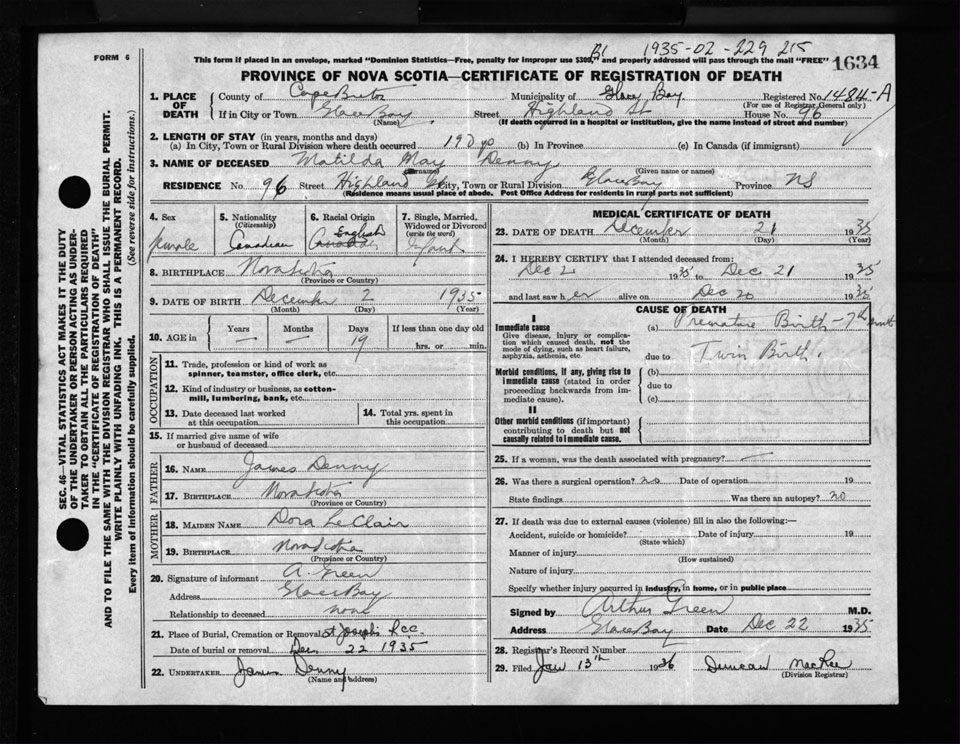 FORM 6
B1 1935-02-229 215
This form if placed in an envelope, marked "Dominion Statistics—Free, penalty for improper use $300," and properly addressed will pass through the mail "FREE" 1634
PROVINCE OF NOVA SCOTIA—CERTIFICATE OF REGISTRATION OF DEATH
1. PLACE OF DEATH
County of Cape Breton Municipality of Glace Bay Registered No. 1484-A
(For use of Registrar General only)
If in City or Town Glace Bay Street Highland St House No. 96
(Name) (If death occurred in a hospital or institution, give the name instead of street and number)
2. LENGTH OF STAY (in years, months and days)
(a) In City, Town or Rural Division where death occurred 19D (b) In Province (c) In Canada (if immigrant)
3. NAME OF DECEASED Matilda May Denny
(Surname) (Given name or names)
RESIDENCE No. 96 Street Highland St City, Town or Rural Division Glace Bay Province NS
(Residence means usual place of abode. Post Office Address for residents in rural parts not sufficient)
4. Sex
female
5. Nationality
(Citizenship)
Canadian
6. Racial Origin
English
Canadian
7. Single, Married, Widowed or Divorced
(write the word)
Infant
8. BIRTHPLACE Nova Scotia
(Province or Country)
9. DATE OF BIRTH December 2 1935
(Month) (Day) (Year)
10. AGE in
Years Months Days If less than one day old
— — 19 hrs. or min.
OCCUPATION
11. Trade, profession or kind of work as spinner, teamster, office clerk, etc.
12. Kind of industry or business, as cotton-mill, lumbering, bank, etc.
13. Date deceased last worked at this occupation
14. Total yrs. spent in this occupation
15. If married give name of wife or husband of deceased
FATHER
16. NAME James Denny
17. BIRTHPLACE Nova Scotia
(Province or Country)
MOTHER
18. MAIDEN NAME Dora LeClair
19. BIRTHPLACE Nova Scotia
(Province or Country)
20. Signature of informant A. Green
Address Glace Bay
Relationship to deceased none
21. Place of Burial, Cremation or Removal St Josephs R.C.C.
Date of burial or removal Dec. 22 1935
22. UNDERTAKER James Denny
(Name and address)
MEDICAL CERTIFICATE OF DEATH
23. DATE OF DEATH December 21 1935
(Month) (Day) (Year)
24. I HEREBY CERTIFY that I attended deceased from:
Dec 2 1935 to Dec 21 1935
and last saw her alive on Dec 20 1935
CAUSE OF DEATH
I
Immediate cause
Give disease, injury or complication which caused death, not the mode of dying, such as heart failure, asphyxia, asthenia, etc.
(a) Premature Birth - 7th month
due to Twin Birth.
Morbid conditions, if any, giving rise to immediate cause (stated in order proceeding backwards from immediate cause).
(b)
due to
(c)
II
Other morbid conditions (if important) contributing to death but not causally related to immediate cause.
25. If a woman, was the death associated with pregnancy? —
26. Was there a surgical operation? no Date of operation 19
State findings Was there an autopsy? no
27. If death was due to external causes (violence) fill in also the following:—
Accident, suicide or homicide? Date of injury 19
(State which)
Manner of injury
(How sustained)
Nature of injury
Specify whether injury occurred in industry, in home, or in public place
Signed by Arthur Green M.D.
Address Glace Bay Date Dec 22 1935
28. Registrar's Record Number
29. Filed Jan 13th 1936 Duncan MacRae
(Division Registrar)
SEC. 46—VITAL STATISTICS ACT MAKES IT THE DUTY
OF THE UNDERTAKER OR PERSON ACTING AS UNDER-
TAKER TO OBTAIN ALL THE PARTICULARS REQUIRED
IN THE "CERTIFICATE OF REGISTRATION OF DEATH"
AND TO FILE THE SAME WITH THE DIVISION REGISTRAR WHO SHALL ISSUE THE BURIAL PERMIT.
WRITE PLAINLY WITH UNFADING INK. THIS IS A PERMANENT RECORD.
Every item of information should be carefully supplied. (See reverse side for instructions.)